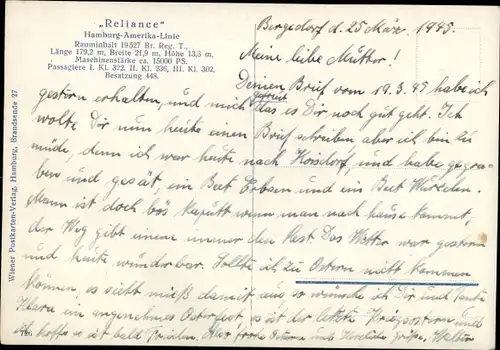 „Reliance"
Hamburg-Amerika-Linie
Rauminhalt 19527 Br. Reg. T.,
Länge 179,2 m, Breite 21,9 m, Höhe 13,3 m,
Maschinenstärke ca. 15000 PS.
Passagiere I. Kl. 372, II. Kl. 236, III. Kl. 302,
Besatzung 448.
Wiener Postkarten-Verlag, Hamburg, Brandsende 27
Bergedorf d. 25 März 1945.
Meine liebe Mutter!
Deinen Brief vom 19.3.45 habe ich
gestern erhalten, und mich gefreut das es Dir noch gut geht. Ich
wolte Dir nun heute einen Brief schreiben aber ich bin zu
müde, denn ich war heute nach und habe gegra-
ben und gesät, ein Beet Erbsen und ein Beet Wurzeln.
Mann ist doch bös kaputt wenn man nach hause kommt,
der Weg gibt einem immer den Rest. Das Wetter war gestern
und heute wunderbar. Sollte ich zu Ostern nicht kommen
können es sieht mieß damit aus so wünsche ich Dir und tante
Klara ein angenehmes Osterfest es ist der letzte Kriegsostern und
ich hoffe es ist bald Frieden. Also frohe Ostern und Herzliche Grüße, Walter